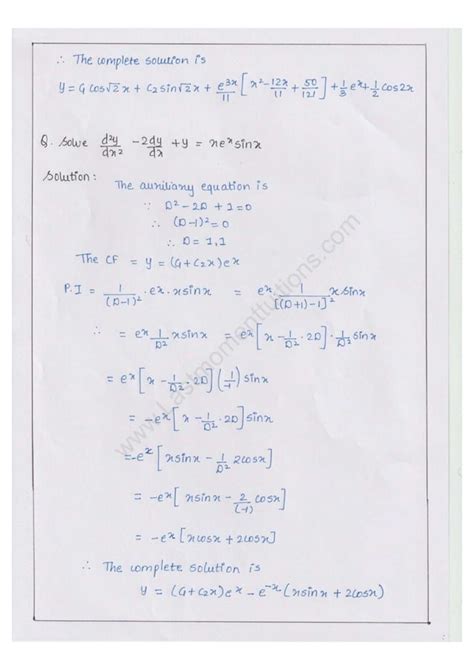 ∴ The complete solution is
y = C₁ cos√2 x + C₂ sin√2 x + e^3x/11 [x² - 12x/11 + 50/121] + 1/3 e^x + 1/2 cos2x
Q. Solve d²y/dx² - 2dy/dx + y = xe^x sinx
Solution:
The auxiliary equation is
∵ D² - 2D + 1 = 0
∴ (D-1)² = 0
∴ D = 1,1
The CF = y = (C₁+C₂x)e^x
P.I = 1/(D-1)² . e^x . x sinx = e^x 1/[(D+1)-1]² x sinx
∴ = e^x 1/D² x sinx = e^x [x - 1/D² . 2D] . 1/D² sinx
= e^x [x - 1/D² . 2D] (1/-1) sinx
= -e^x [x - 1/D² . 2D] sinx
= -e^x [x sinx - 1/D² 2cosx]
= -e^x [x sinx - 2/(-1) cosx]
= -e^x [x cosx + 2cosx]
∴ The complete solution is
y = (C₁+C₂x)e^x - e^-x (x sinx + 2cosx)
www.Lastmomenttuitions.com